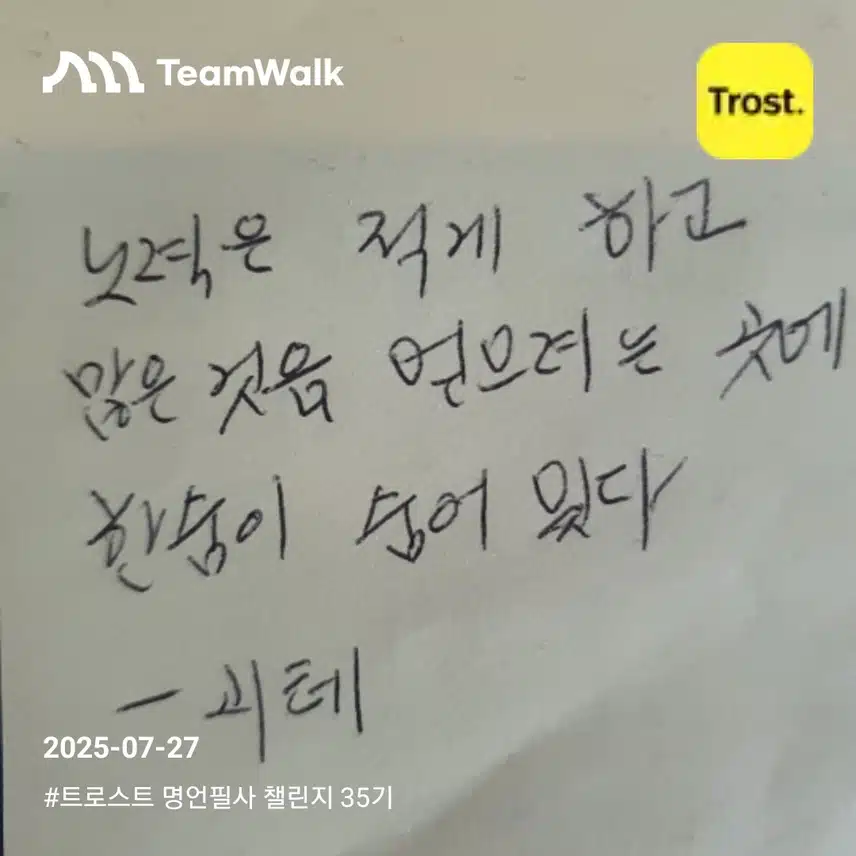 TeamWalk
Trost.
노력은 적게 하고
많은 것을 얻으려는 곳에
한숨이 숨어 있다
- 괴테
2025-07-27
#트로스트 명언필사 챌린지 35기